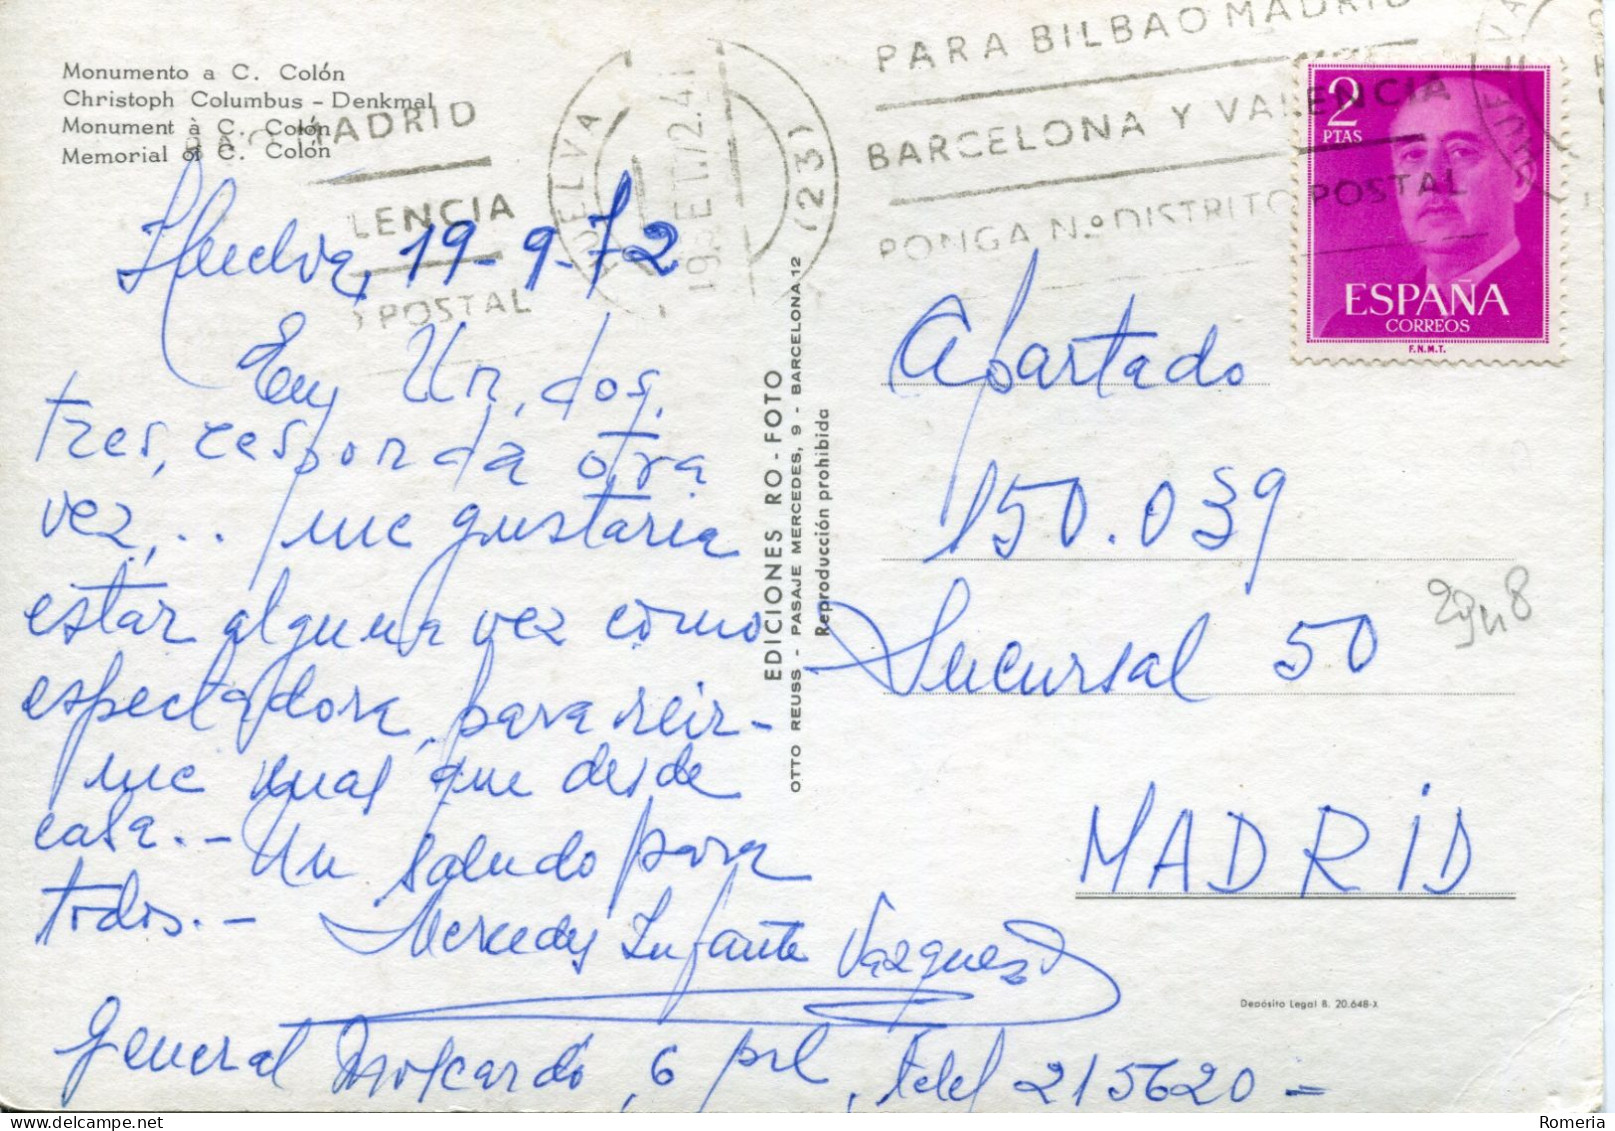 Monumento a C. Colón
Christoph Columbus - Denkmal
Monument à C. Colón
Memorial of C. Colón
MADRID
LENCIA
POSTAL
HUELVA
(23)
PARA BILBAO MADRID
BARCELONA Y VALENCIA
PONGA N.º DISTRITO POSTAL
2
PTAS
ESPAÑA
CORREOS
F.N.M.T.
Huelva, 19-9-72
En Un, dos,
tres, responda otra
vez,.. me gustaria
estar alguna vez como
espectadora, para reir-
me igual que desde
casa.- Un saludo para
todos.-
Mercedes Infante Vazquez
General Moscardó, 6 prl, Telef 215620 -
EDICIONES RO-FOTO
OTTO REUSS - PASAJE MERCEDES, 9 - BARCELONA-12
Reproducción prohibida
Apartado
150.039
Sucursal 50
MADRID
Depósito Legal B. 20.648-X
Romeria